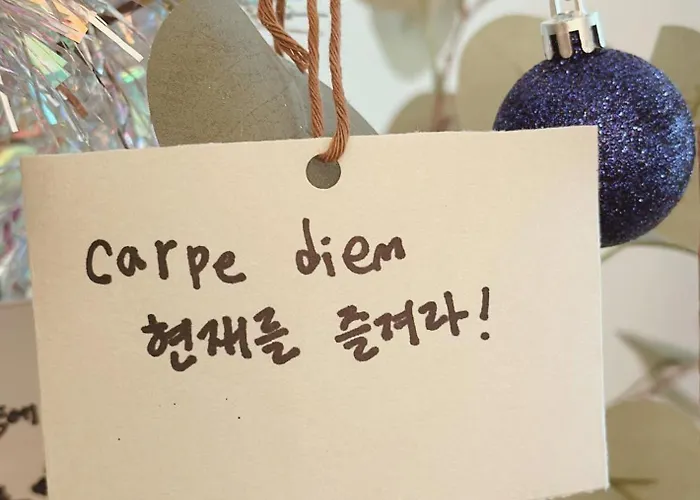 carpe diem
현재를 즐겨라!